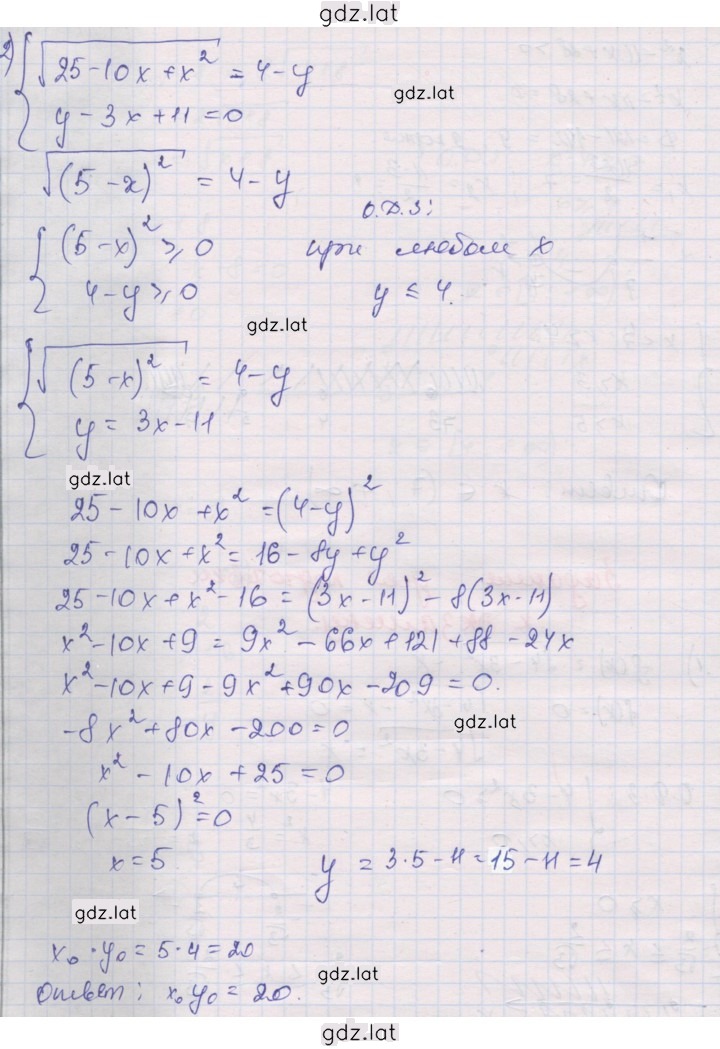 gdz.lat
2) { √(25-10x+x²) = 4-y
y-3x+11=0
gdz.lat
√((5-x)²) = 4-y
О.Д.З:
{ (5-x)² ≥ 0 при любом x
4-y ≥ 0 y ≤ 4.
gdz.lat
{ √((5-x)²) = 4-y
y = 3x-11
gdz.lat
25-10x+x² = (4-y)²
25-10x+x² = 16-8y+y²
25-10x+x²-16 = (3x-11)²-8(3x-11)
x²-10x+9 = 9x²-66x+121+88-24x
x²-10x+9-9x²+90x-209=0.
-8x²+80x-200=0
gdz.lat
x²-10x+25=0
(x-5)²=0
x=5 y = 3·5-11=15-11=4
gdz.lat
x₀·y₀=5·4=20
gdz.lat
Ответ: x₀y₀=20.
gdz.lat